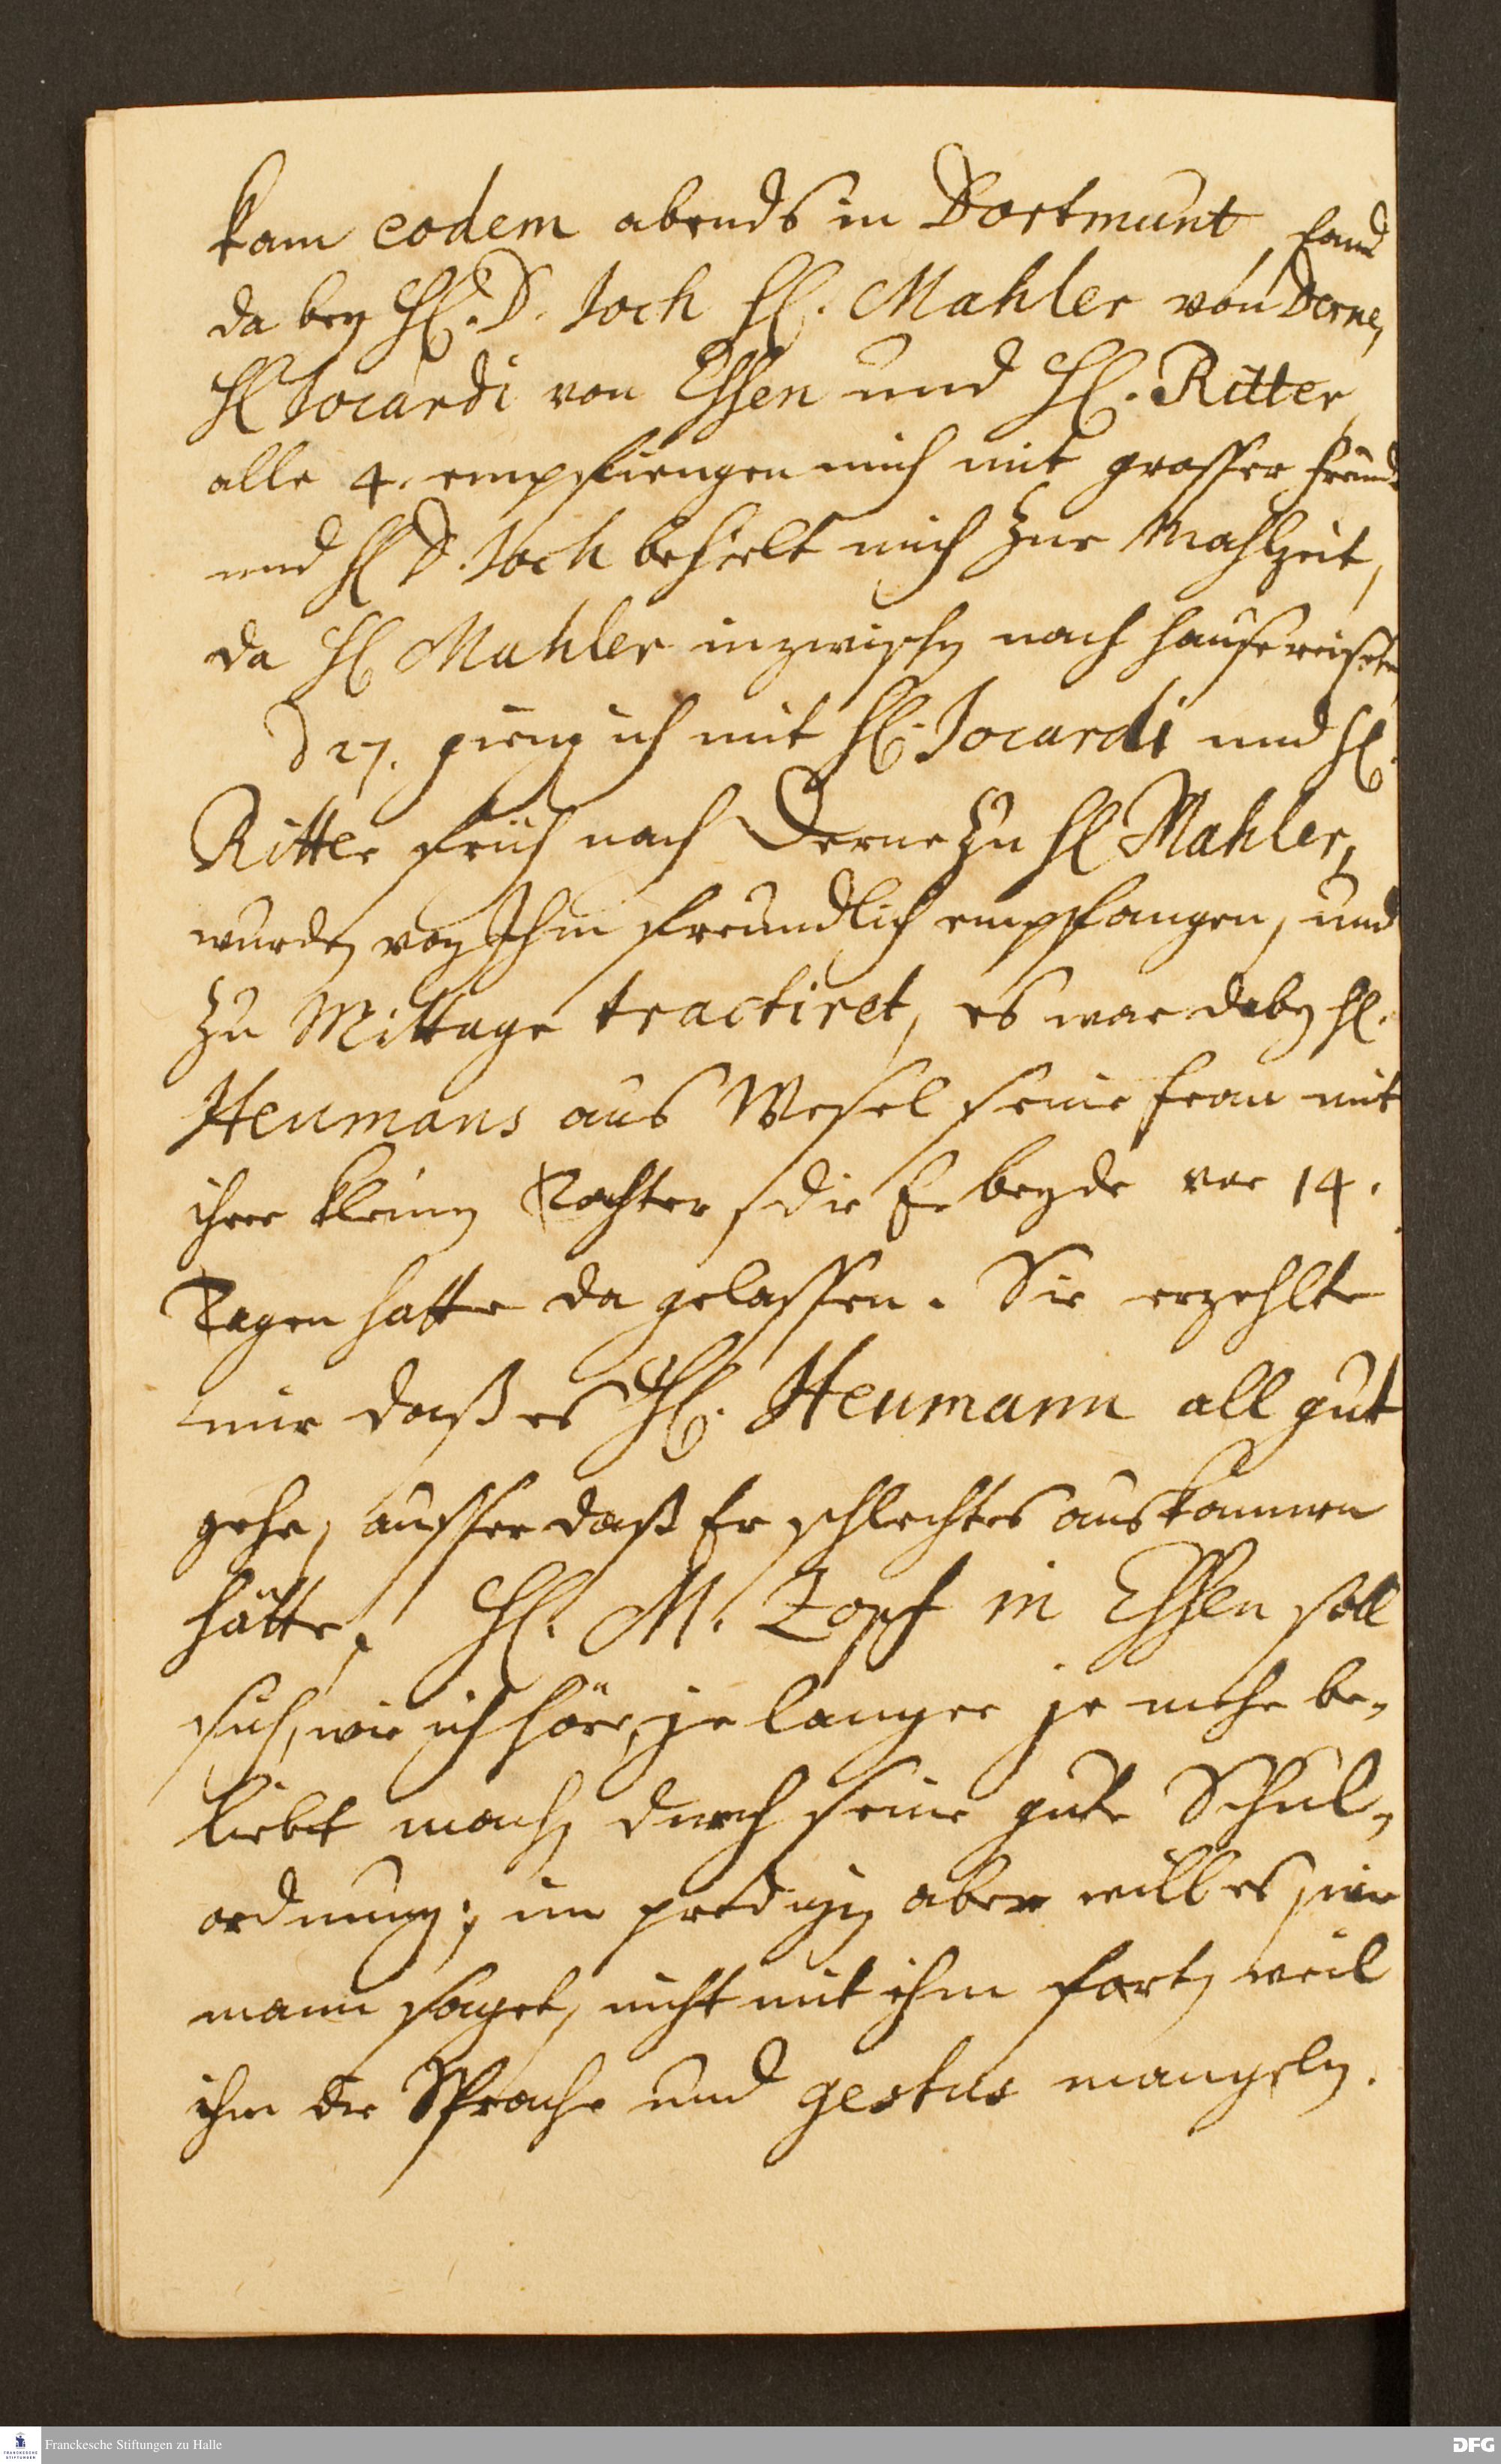 kam eodem abends in Dortmunt, fand
da bey H. D. Joch H. Mahler von Derne,
H Jocardi von Essen und H. Ritter,
alle 4. empfiengen mich mit grosser freude
und H D. Joch behielt mich zur Mahlzeit,
da H Mahler inzwischen nach hause reisete
d 27. gieng ich mit H. Jocardi und H.
Ritter früh nach Derne zu H Mahler,
wurden von Ihm freundlich empfangen, und
zu Mittage tractiret, es war dabey H.
Heumans aus Wesel seine frau mit
ihrer kleinen Tochter, die Er beyde vor 14.
Tagen hatte da gelassen. Sie erzehlte
mir daß es H. Heumann all gut
gehe, ausser daß Er schlechtes auskommen
hätte. H. M. Zopf in Essen soll
sich, wie ich höre, je langer je mehr be-
liebt machen durch seine gute Schul-
ordnung; im predigen aber will es, wie
mann saget, nicht mit ihm fort, weil
ihm die Sprache und gestus mangeln.
Franckesche Stiftungen zu Halle
DFG